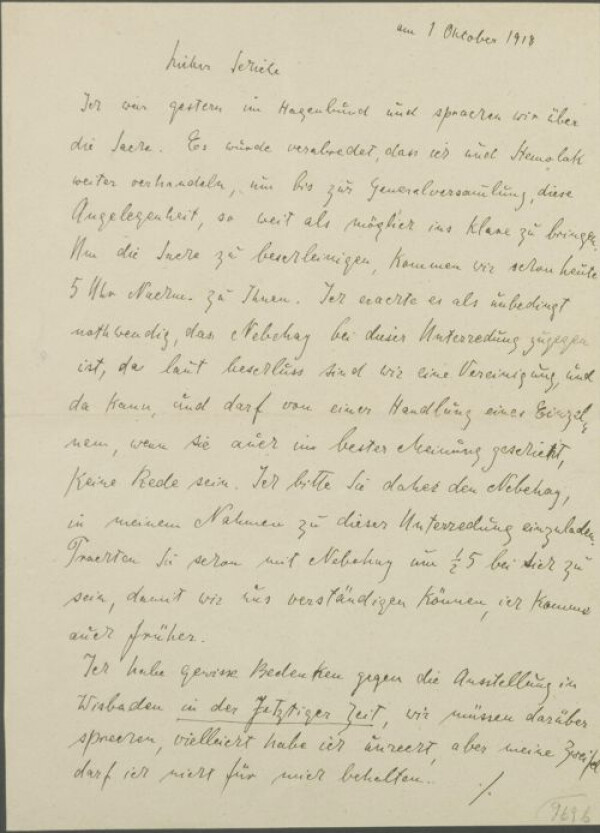 am 1 Oktober 1918
Lieber Schiele
Ich war gestern im Hagenbund und sprachen wir über
die Sache. Es wurde verabredet, dass ich und Hemolak
weiter verhandeln, um bis zur Generalversamlung, diese
Angelegenheit, so weit als möglich ins Klare zu bringen.
Um die Sache zu beschleinigen, kommen wir schon heute
5 Uhr Nachm. zu Ihnen. Ich erachte es als unbedingt
nothwendig, das Nebehay bei dieser Unterredung zugegen
ist, da laut beschluss sind wir eine Vereinigung, und
da kann, und darf von einer Handlung eines Einzel-
nem, wenn sie auch im bester Meinung geschieht,
keine Rede sein. Ich bitte Sie daher den Nebehay,
in meinem Nahmen zu dieser Unterredung einzuladen.
Trachten Sie schon mit Nebehay um ½ 5 bei sich zu
sein, damit wir uns verständigen können, ich komme
auch früher.
Ich habe gewisse Bedenken gegen die Ausstellung in
Wisbaden in der Jetztiger Zeit, wir müssen darüber
sprechen, vielleicht habe ich unrecht, aber meine Zweifel
darf ich nicht für mich behalten.
./.